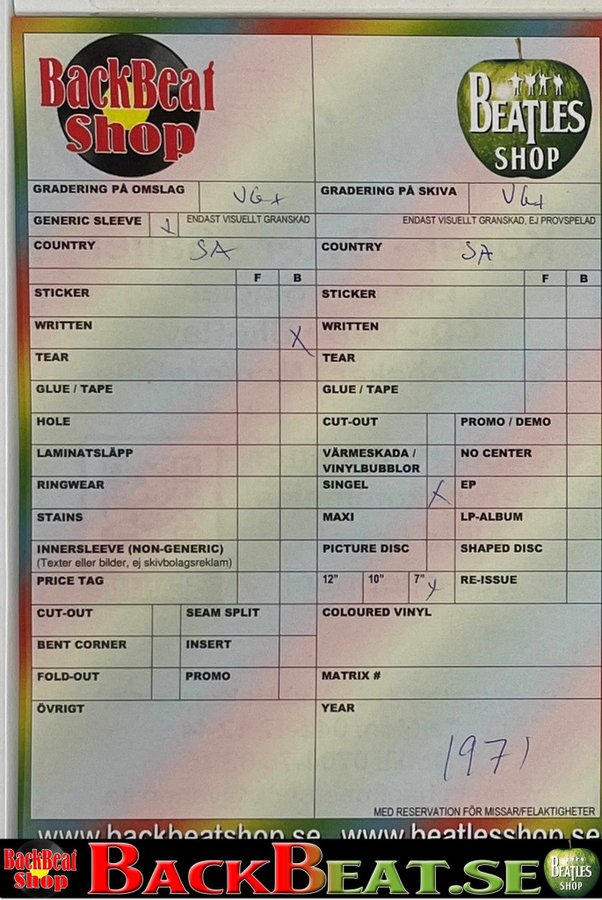 BackBeat Shop
BEATLES SHOP
GRADERING PÅ OMSLAG VG+
GRADERING PÅ SKIVA VG+
GENERIC SLEEVE ENDAST VISUELLT GRANSKAD
ENDAST VISUELLT GRANSKAD, EJ PROVSPELAD
COUNTRY SA
COUNTRY SA
F B
F B
STICKER
STICKER
WRITTEN X
WRITTEN
TEAR
TEAR
GLUE / TAPE
GLUE / TAPE
HOLE
CUT-OUT PROMO / DEMO
LAMINATSLÄPP
VÄRMESKADA /
VINYLBUBBLOR
NO CENTER
RINGWEAR
SINGEL X EP
STAINS
MAXI LP-ALBUM
INNERSLEEVE (NON-GENERIC)
(Texter eller bilder, ej skivbolagsreklam)
PICTURE DISC SHAPED DISC
PRICE TAG
12" 10" 7" RE-ISSUE
CUT-OUT SEAM SPLIT
COLOURED VINYL
BENT CORNER INSERT
FOLD-OUT PROMO
MATRIX #
ÖVRIGT
YEAR
1971
MED RESERVATION FÖR MISSAR/FELAKTIGHETER
www.backbeatshop.se www.beatlesshop.se
BackBeat Shop BACKBEAT.SE BEATLES SHOP